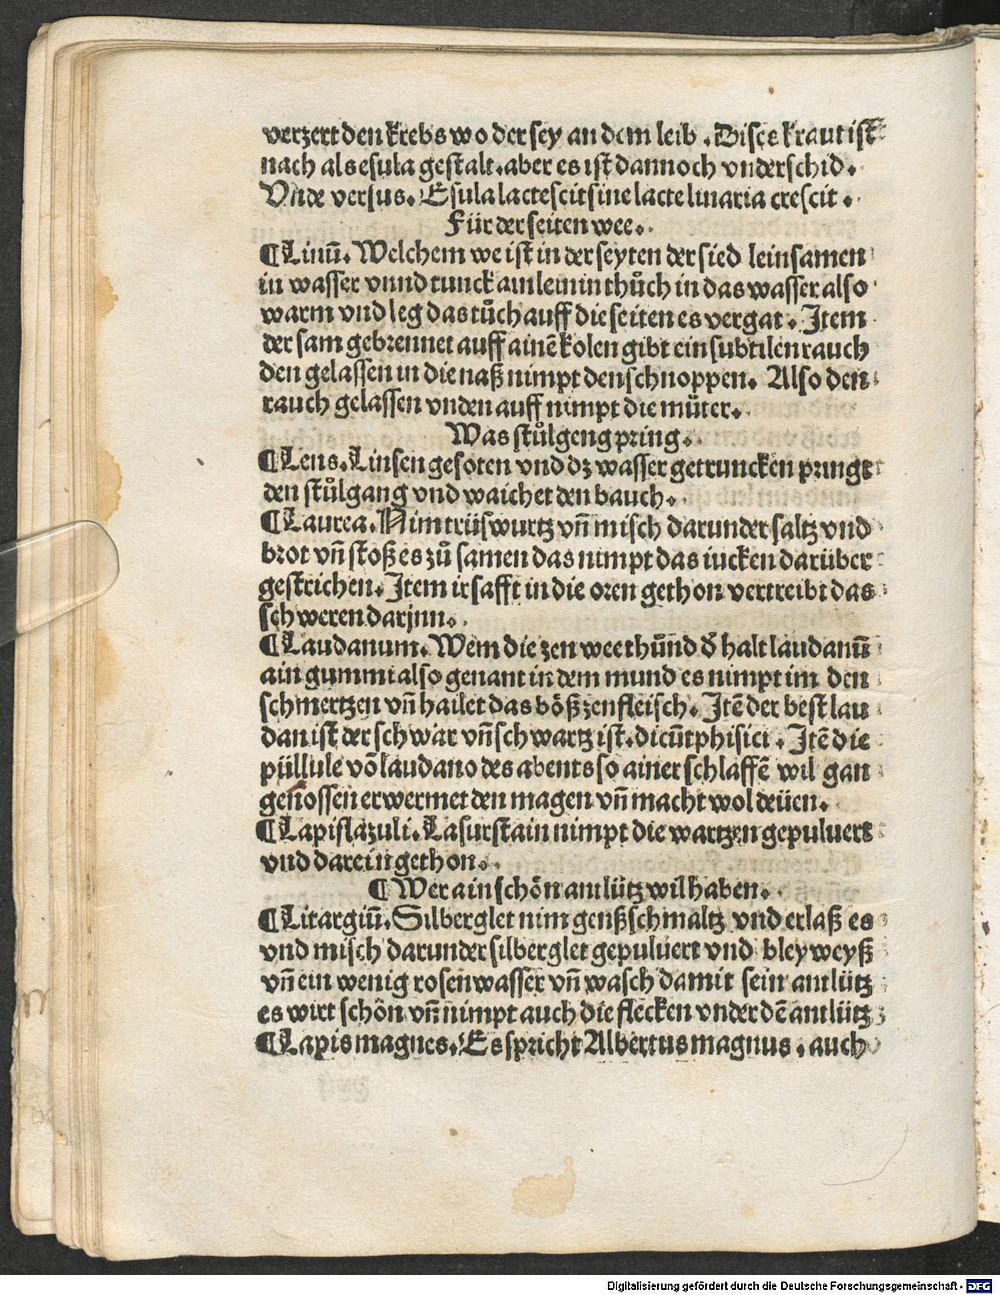 verzert den krebs wo der sey an dem leib. Dises kraut ist
nach als esula gestalt. aber es ist dannoch vnderschid.
Vnde versus. Esula lactescit sine lacte linaria crescit.
Für der seiten wee.
¶Linū. Welchem we ist in der seyten der sied leinsamen
in wasser vnnd tunck ain leinin thůch in das wasser also
warm vnd leg das tůch auff die seiten es vergat. Item
der sam gebrennet auff ainē kolen gibt ein subtilen rauch
den gelassen in die naß nimpt den schnoppen. Also den
rauch gelassen vnden auff nimpt die můter.
Was stůlgeng pring.
¶Lens. Linsen gesoten vnd dz wasser getruncken pringt
den stůlgang vnd waichet den bauch.
¶Laurea. Nim trüswurtz vñ misch darunder saltz vnd
brot vñ stoß es zů samen das nimpt das iucken darüber
gestrichen. Item ir safft in die oren gethon vertreibt das
schweren darjnn.
¶Laudanum. Wem die zen wee thůnd d' halt laudanū
ain gummi also genant in dem mund es nimpt im den
schmertzen vñ hailet das bößzenfleisch. Itē der best lau
dan ist der schwär vñ schwartz ist. dicūt phisici. Itē die
püllule vō laudano des abents so ainer schlaffē wil gan
genossen erwermet den magen vñ macht wol deüen.
¶Lapislazuli. Lasurstain nimpt die wartzen gepuluert
vnd darein gethon.
¶Wer ain schön antlütz wil haben.
¶Litargiū. Silberglet nim genßschmaltz vnd erlaß es
vnd misch darunder silberglet gepuluert vnd bleyweyß
vñ ein wenig rosenwasser vñ wasch damit sein antlütz
es wirt schön vñ nimpt auch die flecken vnder dē antlütz
¶Lapis magnes. Es spricht Albertus magnus. auch
Digitalisierung gefördert durch die Deutsche Forschungsgemeinschaft - DFG